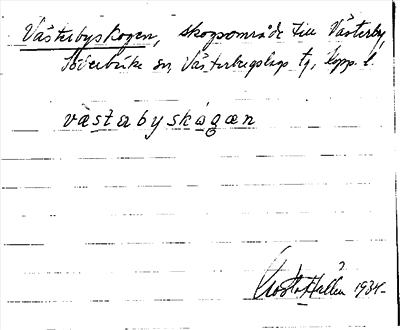 Västerbyskogen, skogsområde till Västerby,
Söderbärke sn, Västerbergslags tg, Kopp. l.
västabyskågæn
Gösta Hallén 1934-